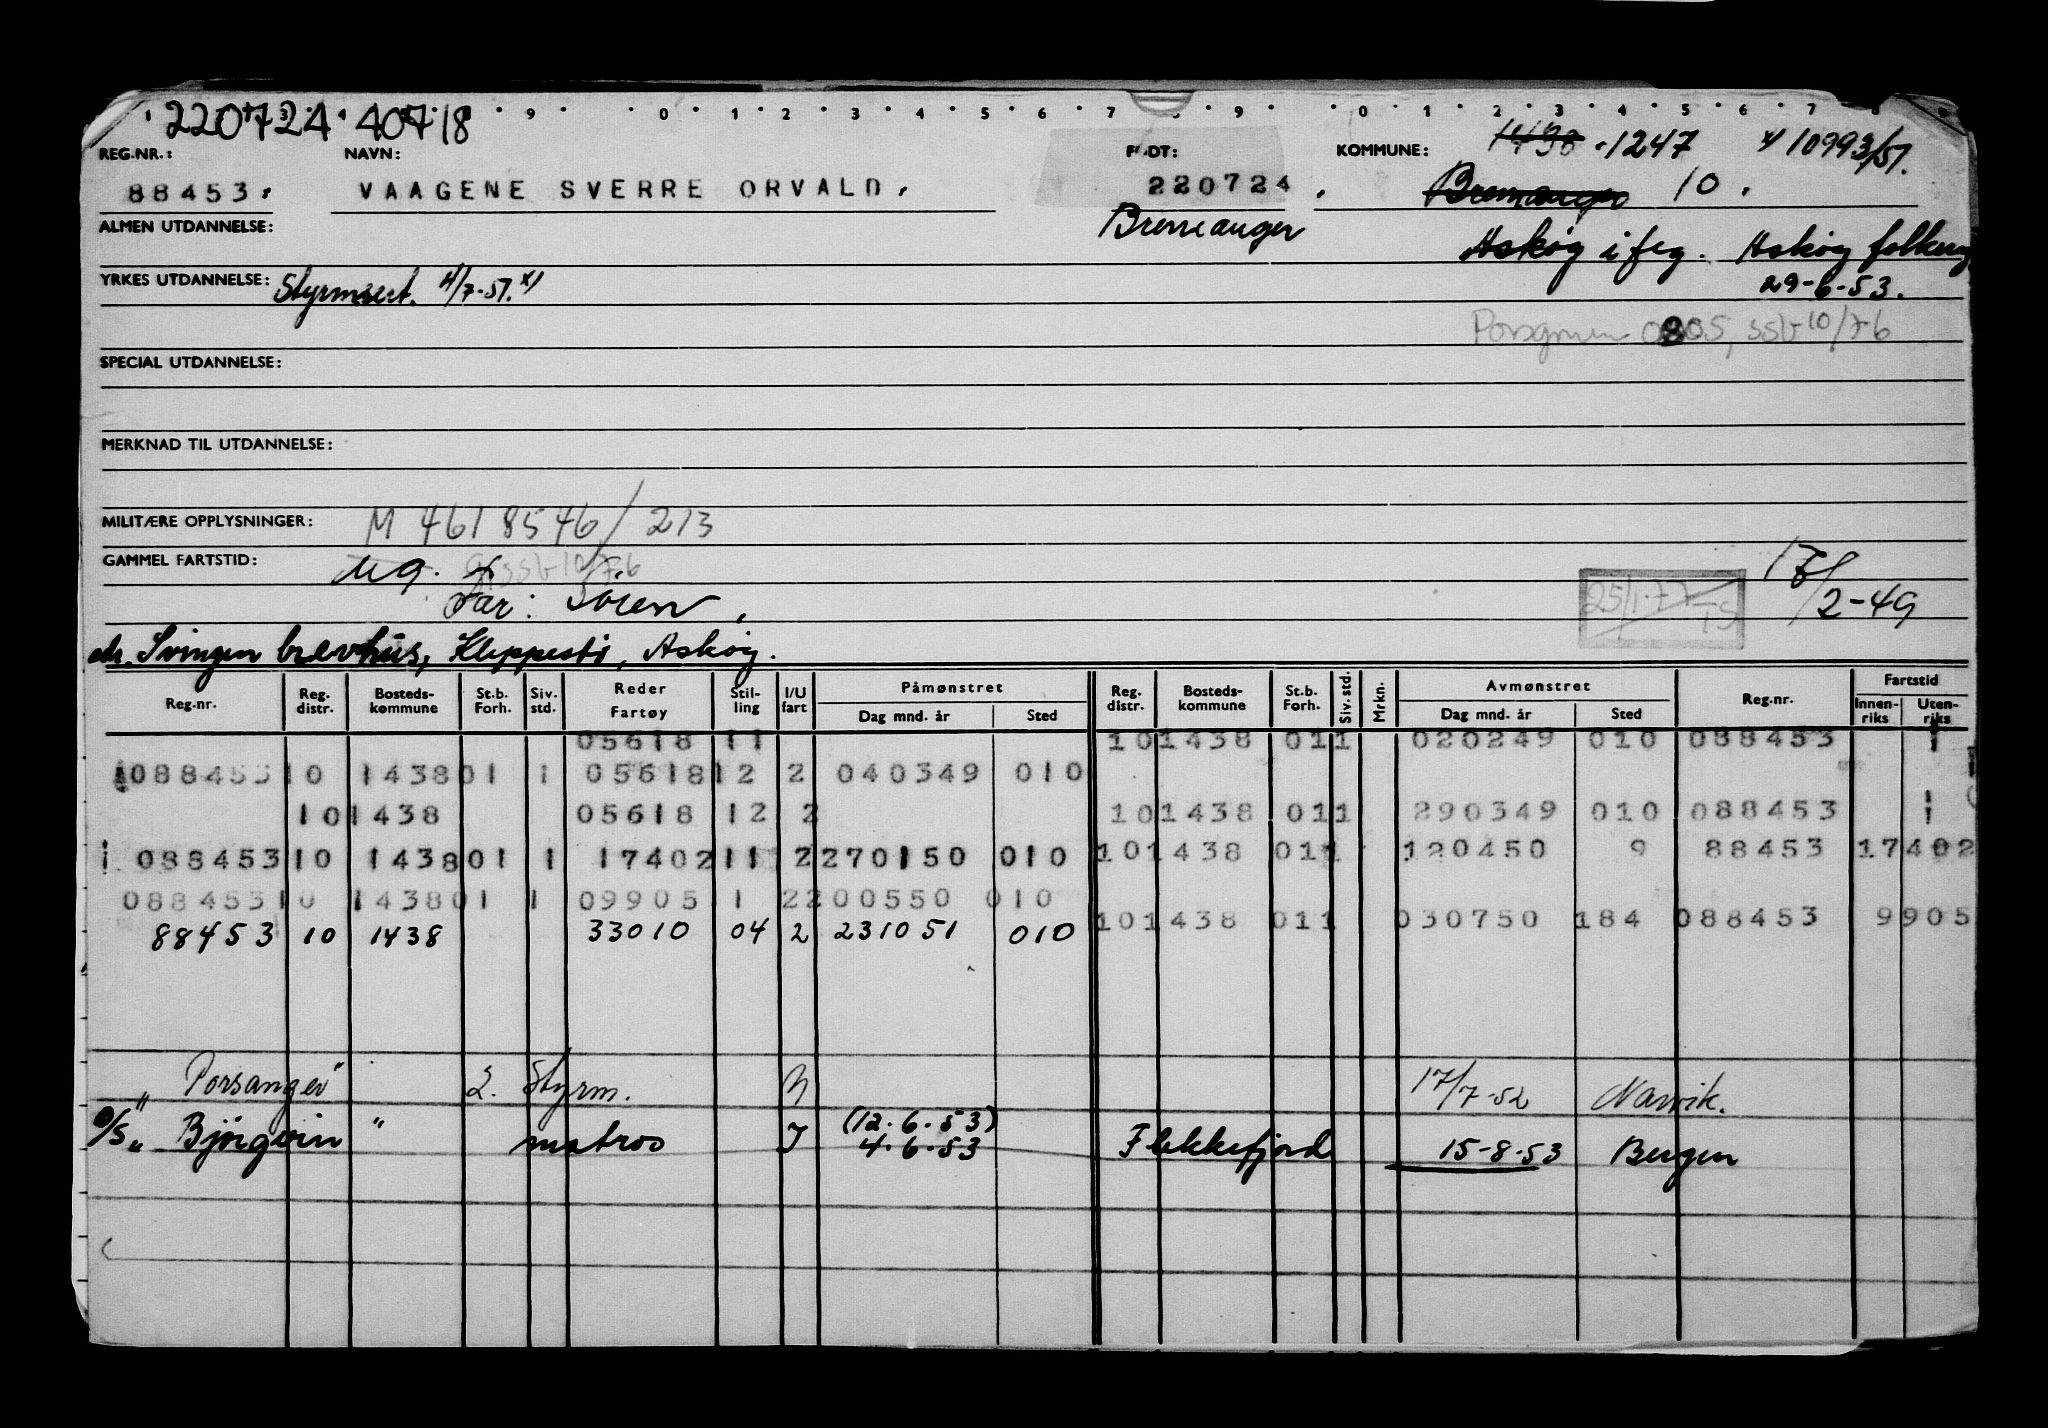 220724 40718
9 0 1 2 3 4 5 6 7 9 0 1 2 3 4 5 6 7 8
REG.NR.: NAVN: FØDT: KOMMUNE: 1438 1247 x) 10993/51.
88453. VAAGENE SVERRE ORVALD, 220724. Bremanger 10.
ALMEN UTDANNELSE: Bremanger Askøy i flg. Askøy folkereg
YRKES UTDANNELSE: Styrmsert. 4/7-51. x) 29-6-53.
Porsgrunn 0805, SSV 10/76
SPECIAL UTDANNELSE:
MERKNAD TIL UTDANNELSE:
MILITÆRE OPPLYSNINGER: M 4618546/213
GAMMEL FARTSTID: ssv 10/76 17/2-49
Far: Sören, 25/1-77 TS
adr. Svingen brevhus, Kleppestø, Askøy.
Reg.nr. Reg. distr. Bosteds-kommune St.b. Forh. Siv. std. Reder Fartøy Stil-ling I/U fart Påmønstret Reg. distr. Bosteds-kommune St.b. Forh. Siv. std. Mrkn. Avmønstret Reg.nr. Fartstid
Dag mnd. år Sted Dag mnd. år Sted Innen-riks Uten-riks
05618 11 10 1438 01 1 020249 010 088453 1
1 088453 10 1438 01 1 05618 12 2 040349 010
10 1438 05618 12 2 10 1438 01 1 290349 010 088453 1
1 088453 10 1438 01 1 17402 11 2 270150 010 10 1438 01 1 120450 9 88453 17402
088453 10 1438 01 1 09905 1 2 200550 010
10 1438 01 1 030750 184 088453 9905
88453 10 1438 33010 04 2 231051 010
"Porsanger" 2. Styrm. U 17/7-52 Narvik.
D/S "Bjørgvin" matros I (12.6.53) 4.6.53 Flekkefjord 15-8-53 Bergen